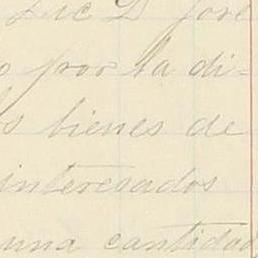 Luc D José
o por la di=
s bienes de
interesados
una cantidad